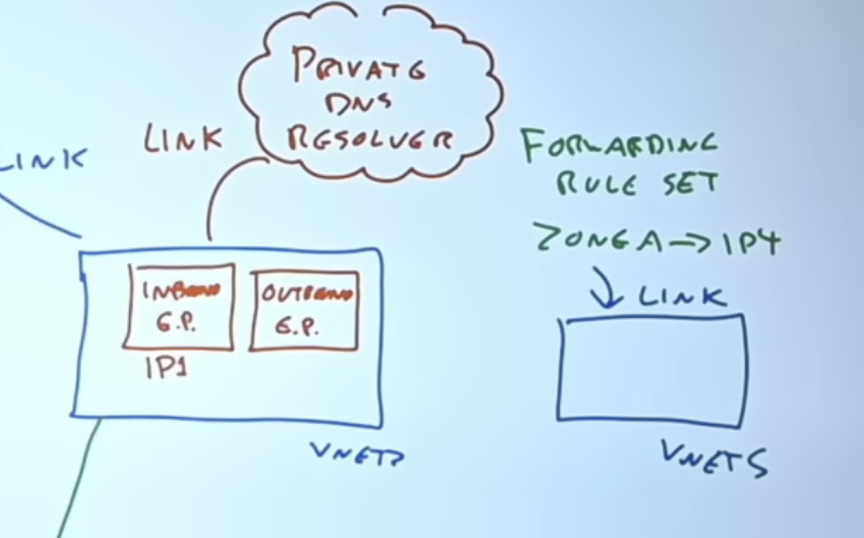 PRIVATE
DNS
RESOLVER
LINK
LINK
FORWARDING
RULE SET
ZONE A → IP4
LINK
INBOUND
E.P.
OUTBOUND
E.P.
IP1
VNET2
VNET5